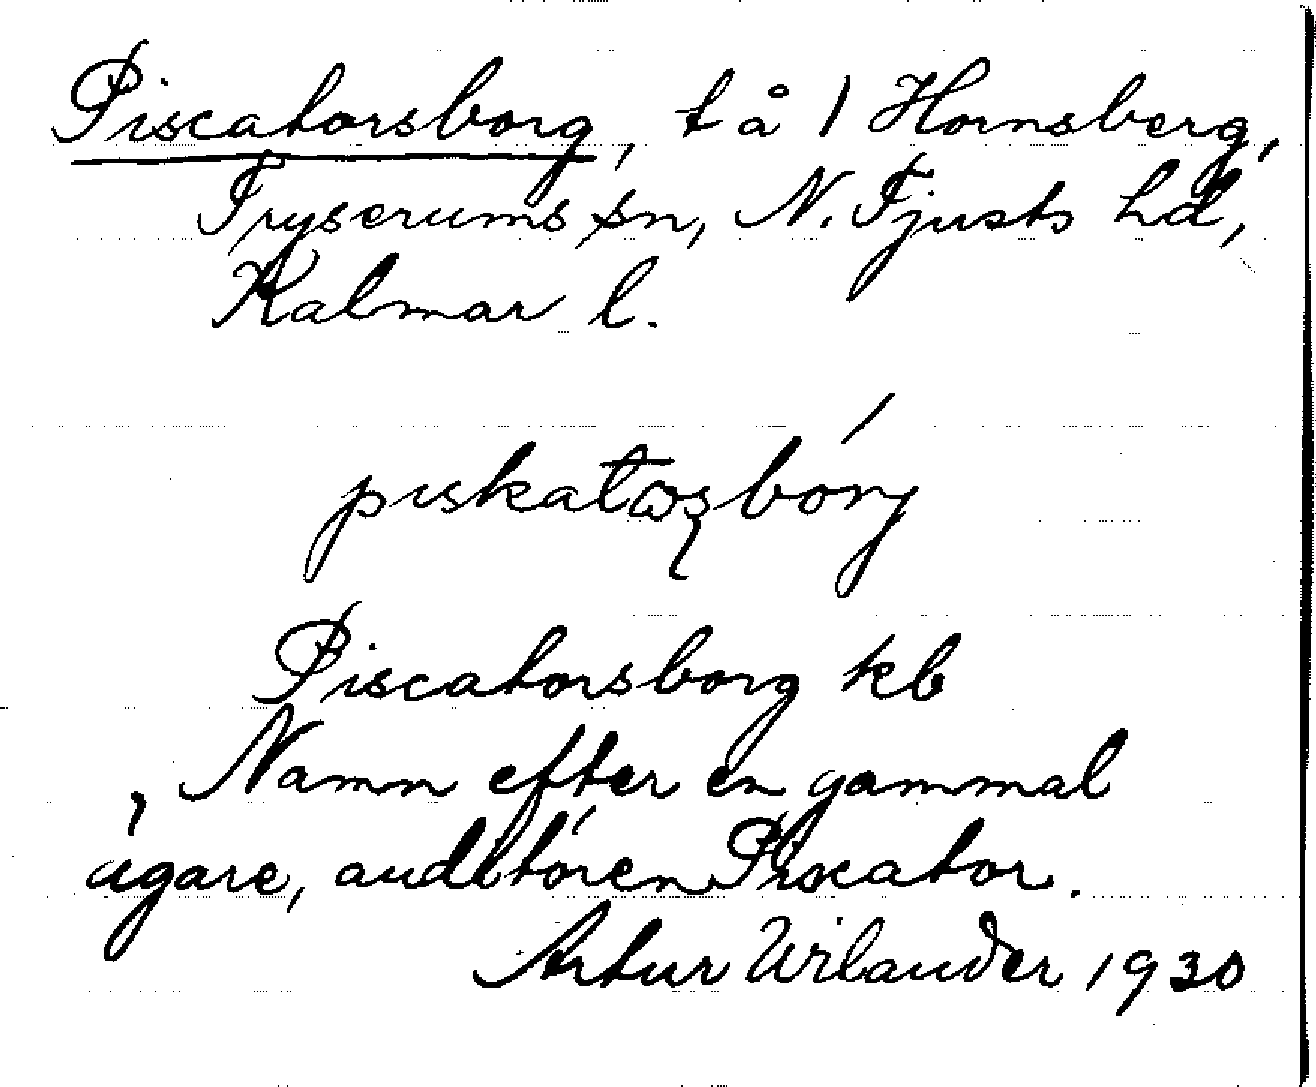 Piscatorsborg, t å 1 Hornsberg,
Tryserums sn, N. Tjusts hd,
Kalmar l.
Piscatorsborg kb
Namn efter en gammal
ägare, auditören Piscator.
Artur Wilander 1930